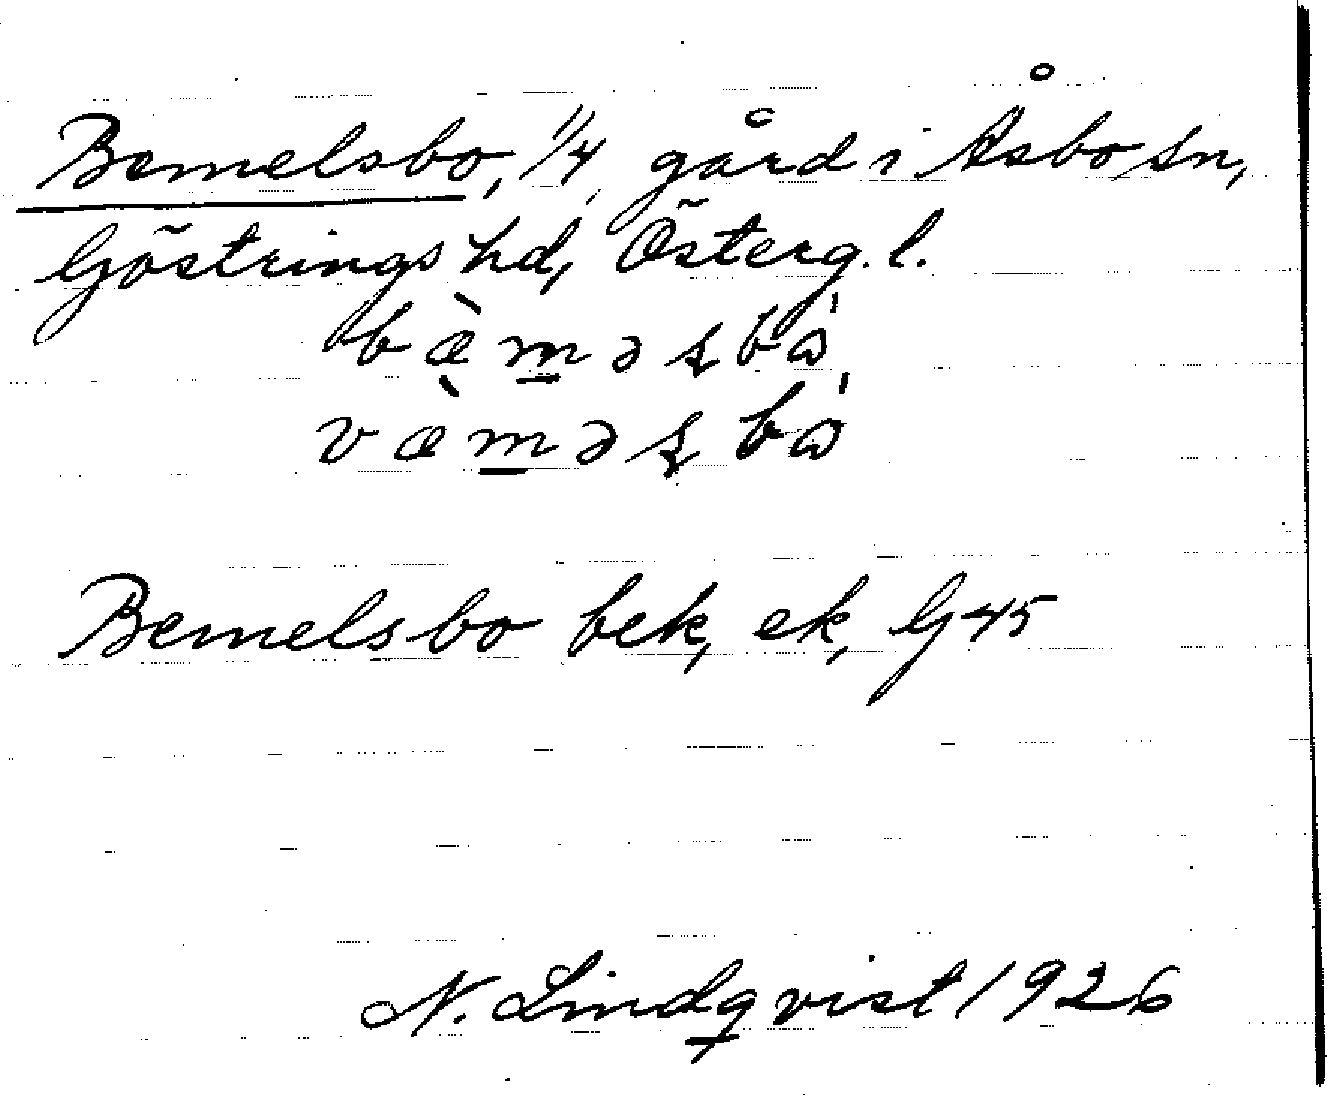 Bemelsbo, 1/4 gård i Åsbo sn,
Göstrings hd, Österg.l.
bæ̀m̲əʂbɷ̀
væ̀m̲əʂbɷ̀
Bemelsbo bek, ek, G45
N. Lindqvist 1926